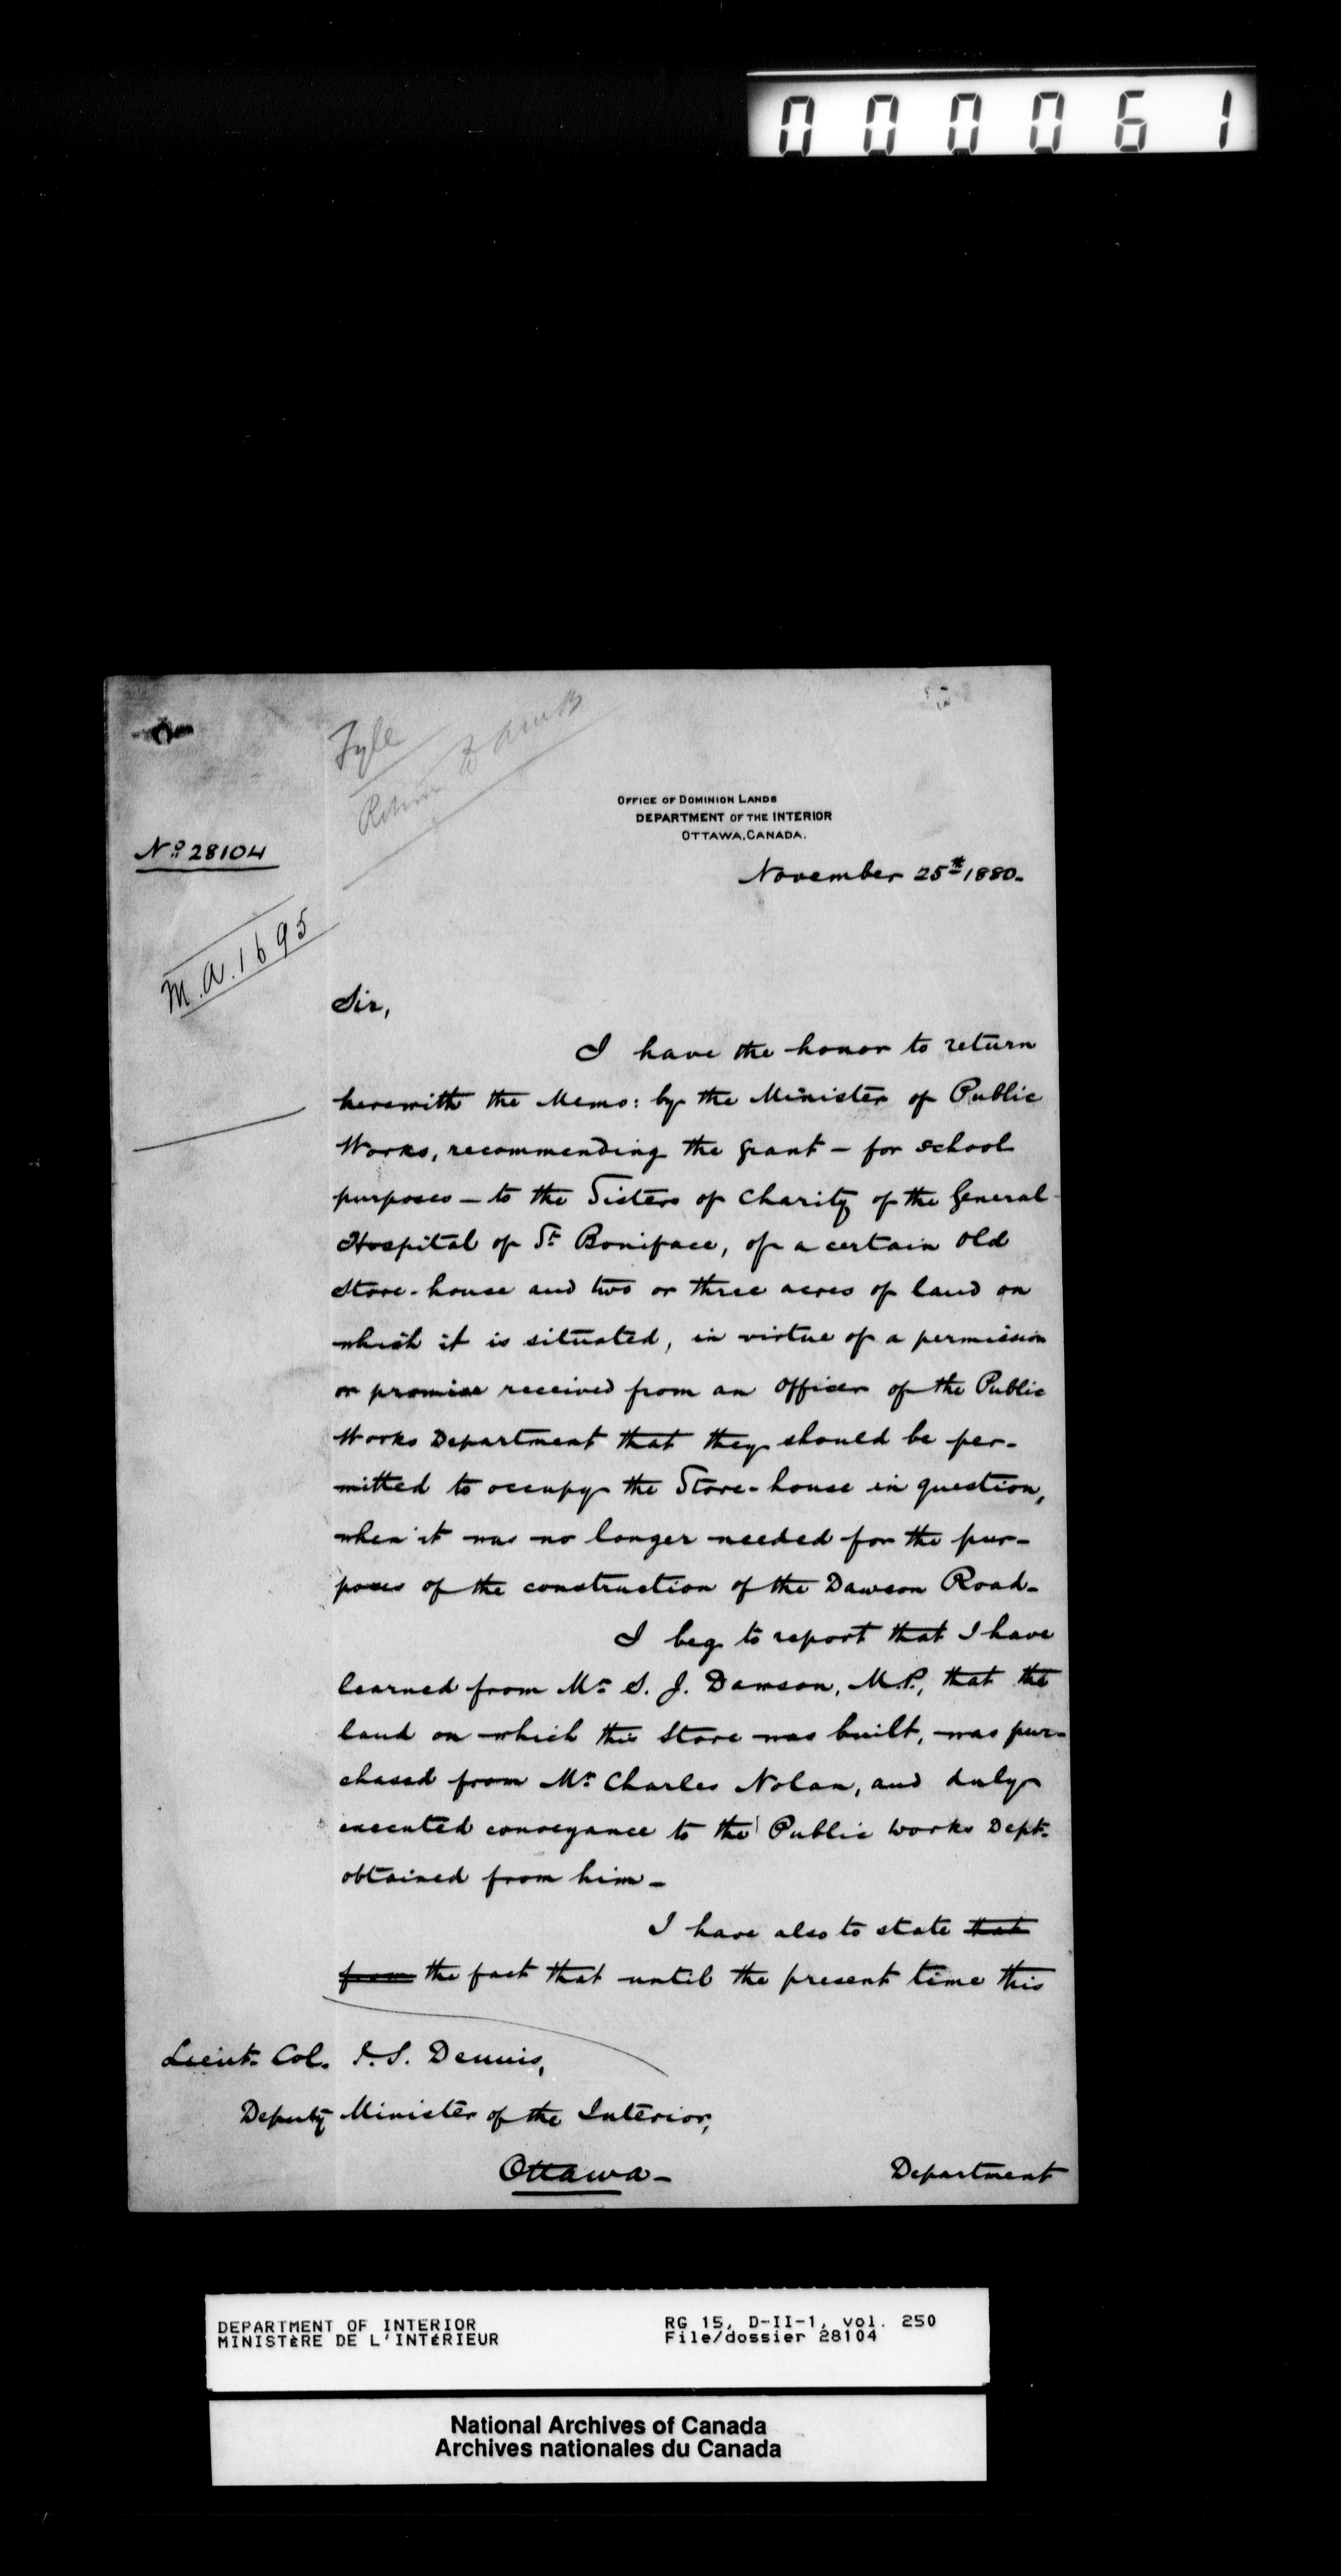 000061
Fyle
OFFICE OF DOMINION LANDS
DEPARTMENT OF THE INTERIOR
OTTAWA, CANADA.
No 28104
November 25th 1880.
M.A. 1695
Sir,
I have the honor to return
herewith the Memo: by the Minister of Public
Works, recommending the grant – for school
purposes – to the Sisters of Charity of the General
Hospital of St Boniface, of a certain old
Store-house and two or three acres of land on
which it is situated, in virtue of a permission
or promise received from an Officer of the Public
Works Department that they should be per-
mitted to occupy the Store-house in question,
when it was no longer needed for the pur-
poses of the construction of the Dawson Road–
I beg to report that I have
learned from Mr S. J. Dawson, M.P., that the
land on which this Store was built, was pur-
chased from Mr Charles Nolan, and duly
executed conveyance to the Public Works Dept.
obtained from him –
I have also to state that
from the fact that until the present time this
Lieut. Col. J. S. Dennis,
Deputy Minister of the Interior,
Ottawa –
Department
DEPARTMENT OF INTERIOR
MINISTÈRE DE L'INTÉRIEUR
RG 15, D-II-1, vol. 250
File/dossier 28104
National Archives of Canada
Archives nationales du Canada